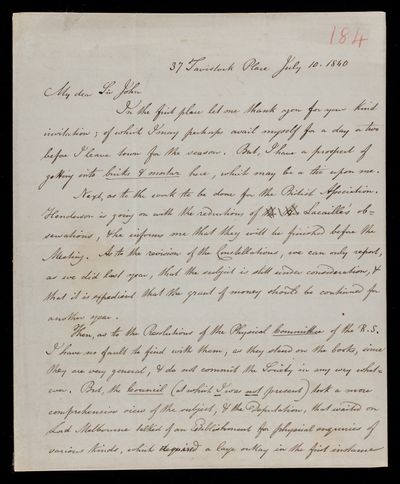 184
37 Tavistock Place July 10. 1840
My dear Sir John
In the first place let me thank you for your kind
invitation; of which I may perhaps avail myself for a day or two
before I leave town for the season. But, I have a prospect of
getting into bricks & mortar here, which may be a tie upon me.
Next, as to the work to be done for the British Association.
Henderson is going on with the reduction of Lacaille's ob-
servations, & he informs me that they will be finished before the
Meeting. As to the revision of the Constellations, we can only report,
as we did last year, that the subject is still under consideration, &
that it is expedient that the grant of money should be continued for
another year.
Then, as to the Resolutions of the Physical Committee of the R.S.
I have no fault to find with them, as they stand on the books, since
they are very general, & do not commit the Society in any way what-
ever. But, the Council (at which I was not present) took a more
comprehensive view of the subject, & the Deputation, that waited on
Lord Melbourne talked of an Establishment for physical enquiries of
various kinds, which required a large outlay in the first instance